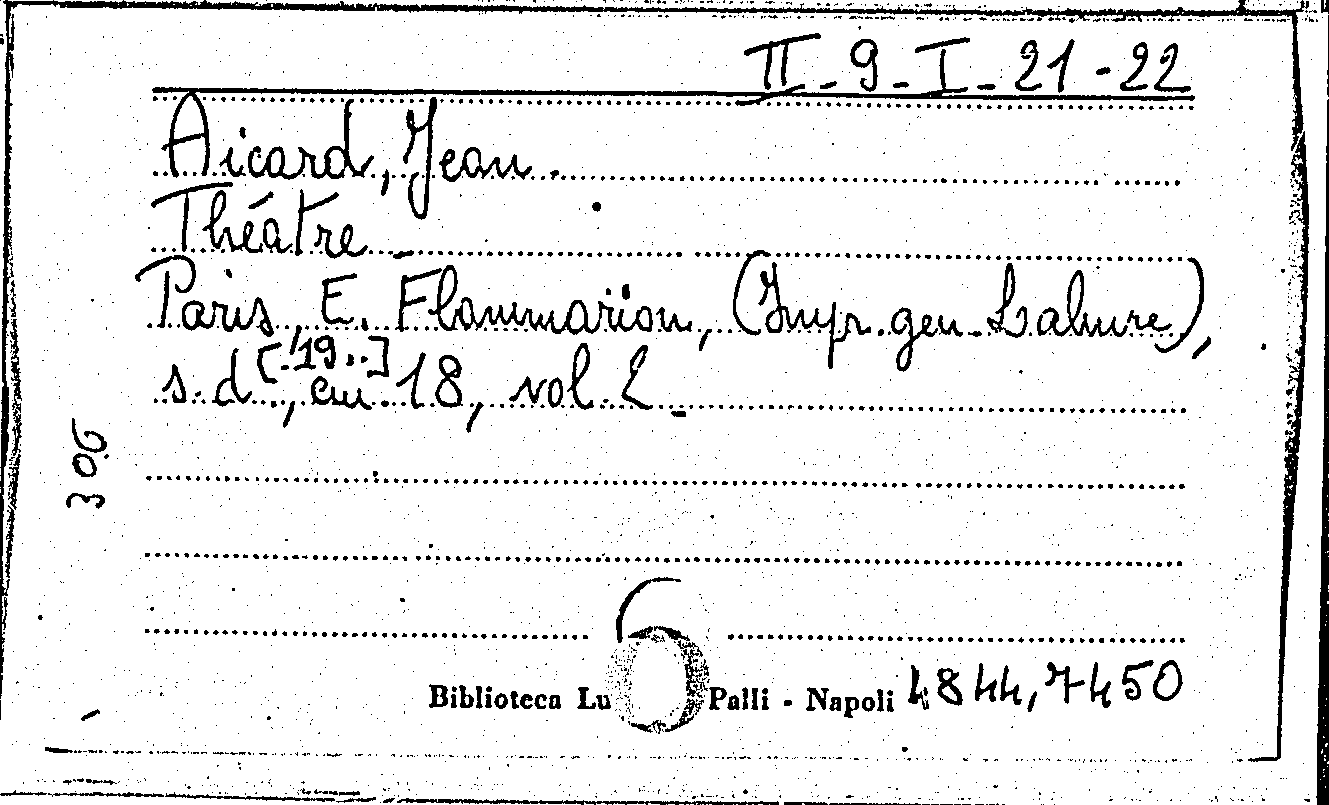 II - 9 - I - 21 - 22
Aicard, Jean.
Théâtre
Paris, E. Flammarion, (Impr. gen. Lahure),
s. d. [19..], cm 18, vol. 2
306
Biblioteca Lu Palli - Napoli 4844, 7450